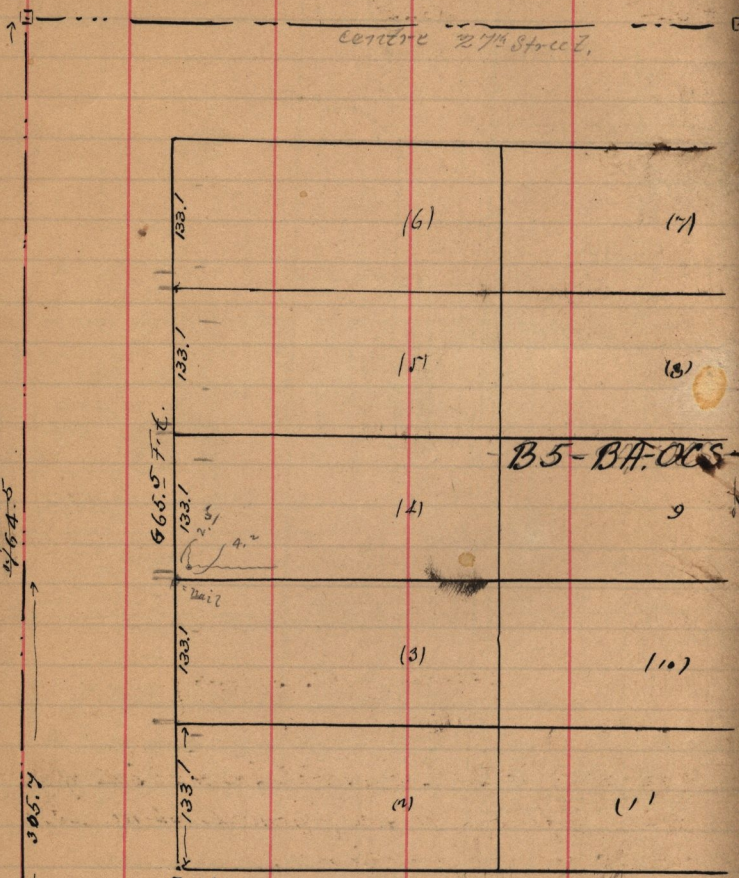 centre 27th Street.
133.1
(6)
(7)
133.1
(5)
(8)
665.5 Ft.
B5-BA-OCS-
133.1
(4)
9
4.2
nail
133.1
(3)
(10)
133.1
(2)
(11
305.7